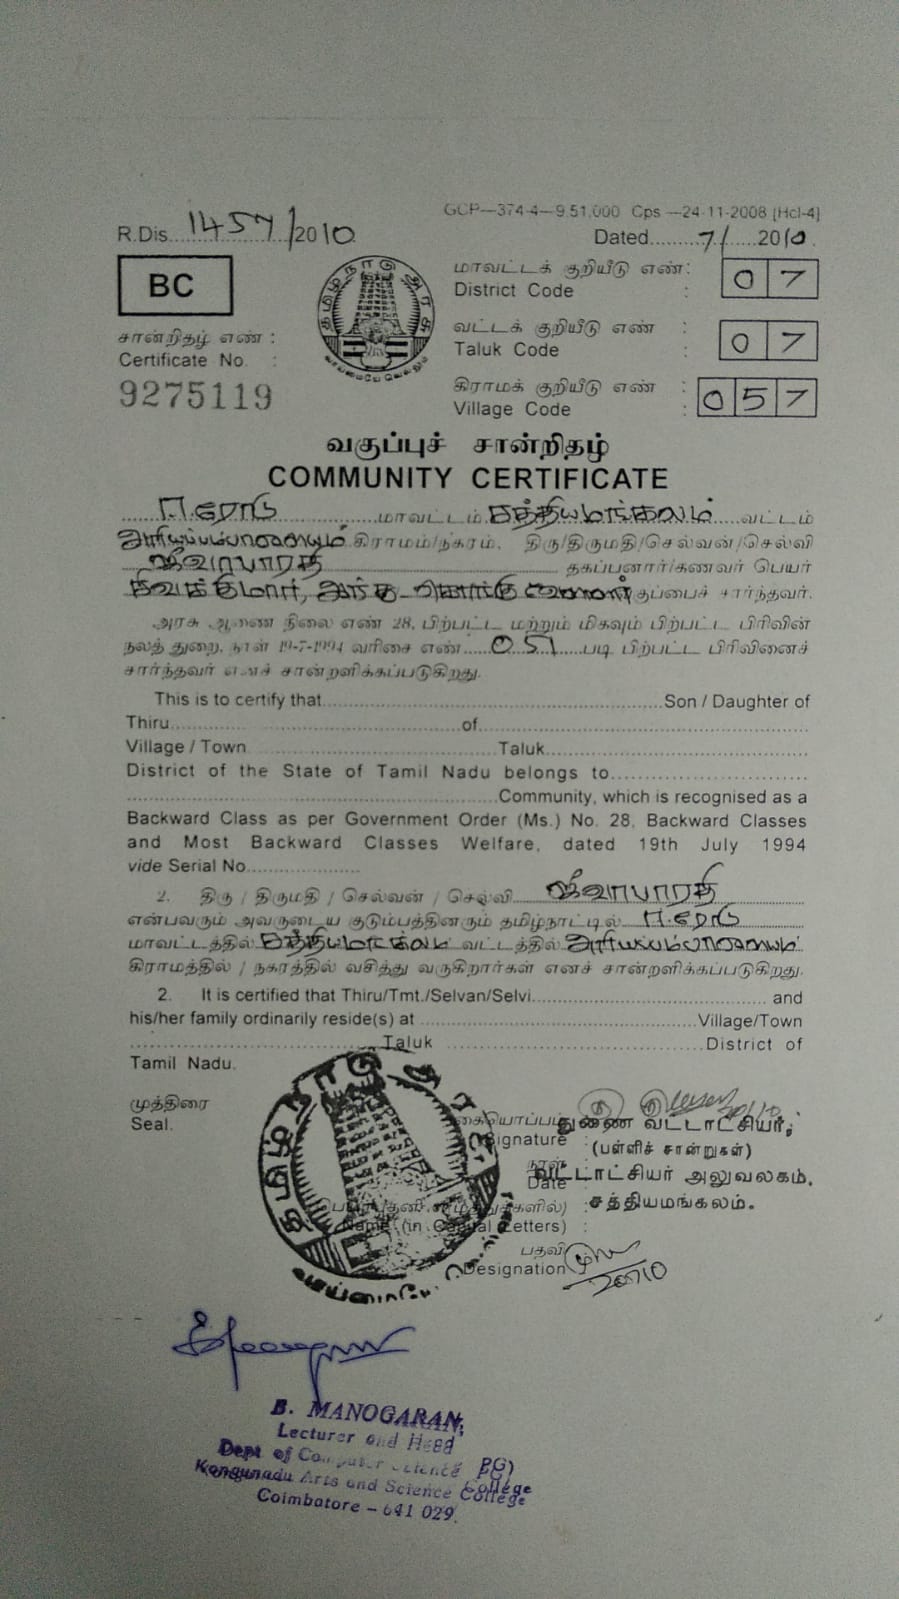 GCP—374-4—9.51,000 Cps —24-11-2008 [Hcl-4]
R.Dis. 1457/2010 Dated.........7/......2010.
BC
மாவட்டக் குறியீடு எண்: 0 7
District Code :
சான்றிதழ் எண் :
Certificate No. :
9275119
தமிழ்நாடு அரசு
வாய்மையே வெல்லும்
வட்டக் குறியீடு எண் : 0 7
Taluk Code :
கிராமக் குறியீடு எண் : 0 5 7
Village Code :
வகுப்புச் சான்றிதழ்
COMMUNITY CERTIFICATE
ஈரோடு மாவட்டம் சத்தியமங்கலம் வட்டம்
அரியப்பம்பாளையம் கிராமம்/நகரம், திரு/திருமதி/செல்வன்/செல்வி
ஜீவாபாரதி தகப்பனார்/கணவர் பெயர்
சிவக்குமார், இந்து கொங்கு வேளாளர் குப்பைச் சார்ந்தவர்.
அரசு ஆணை நிலை எண் 28, பிற்பட்ட மற்றும் மிகவும் பிற்பட்ட பிரிவின்
நலத் துறை, நாள் 19-7-1994 வரிசை எண் படி, பிற்பட்ட பிரிவினைச்
சார்ந்தவர் எனச் சான்றளிக்கப்படுகிறது.
This is to certify that..................Son / Daughter of
Thiru..................of..................
Village / Town ..................Taluk..................
District of the State of Tamil Nadu belongs to..................
..................Community, which is recognised as a
Backward Class as per Government Order (Ms.) No. 28, Backward Classes
and Most Backward Classes Welfare, dated 19th July 1994
vide Serial No..................
2. திரு / திருமதி / செல்வன் / செல்வி ஜீவாபாரதி
என்பவரும் அவருடைய குடும்பத்தினரும் தமிழ்நாட்டில் ஈரோடு
மாவட்டத்தில் சத்தியமங்கலம் வட்டத்தில் அரியப்பம்பாளையம்
கிராமத்தில் / நகரத்தில் வசித்து வருகிறார்கள் எனச் சான்றளிக்கப்படுகிறது.
2. It is certified that Thiru/Tmt./Selvan/Selvi.................. and
his/her family ordinarily reside(s) at ..................Village/Town
..................Taluk ..................District of
Tamil Nadu.
முத்திரை
Seal.
கையொப்பம் துணை வட்டாட்சியர்,
Signature : (பள்ளிச் சான்றுகள்)
நாள் வட்டாட்சியர் அலுவலகம்,
Date
சத்தியமங்கலம்.
Name (in Capital Letters) :
பதவி
Designation
B. MANOGARAN,
Lecturer and Head
Dept of Computer Science PG)
Kongunadu Arts and Science College
Coimbatore – 641 029.